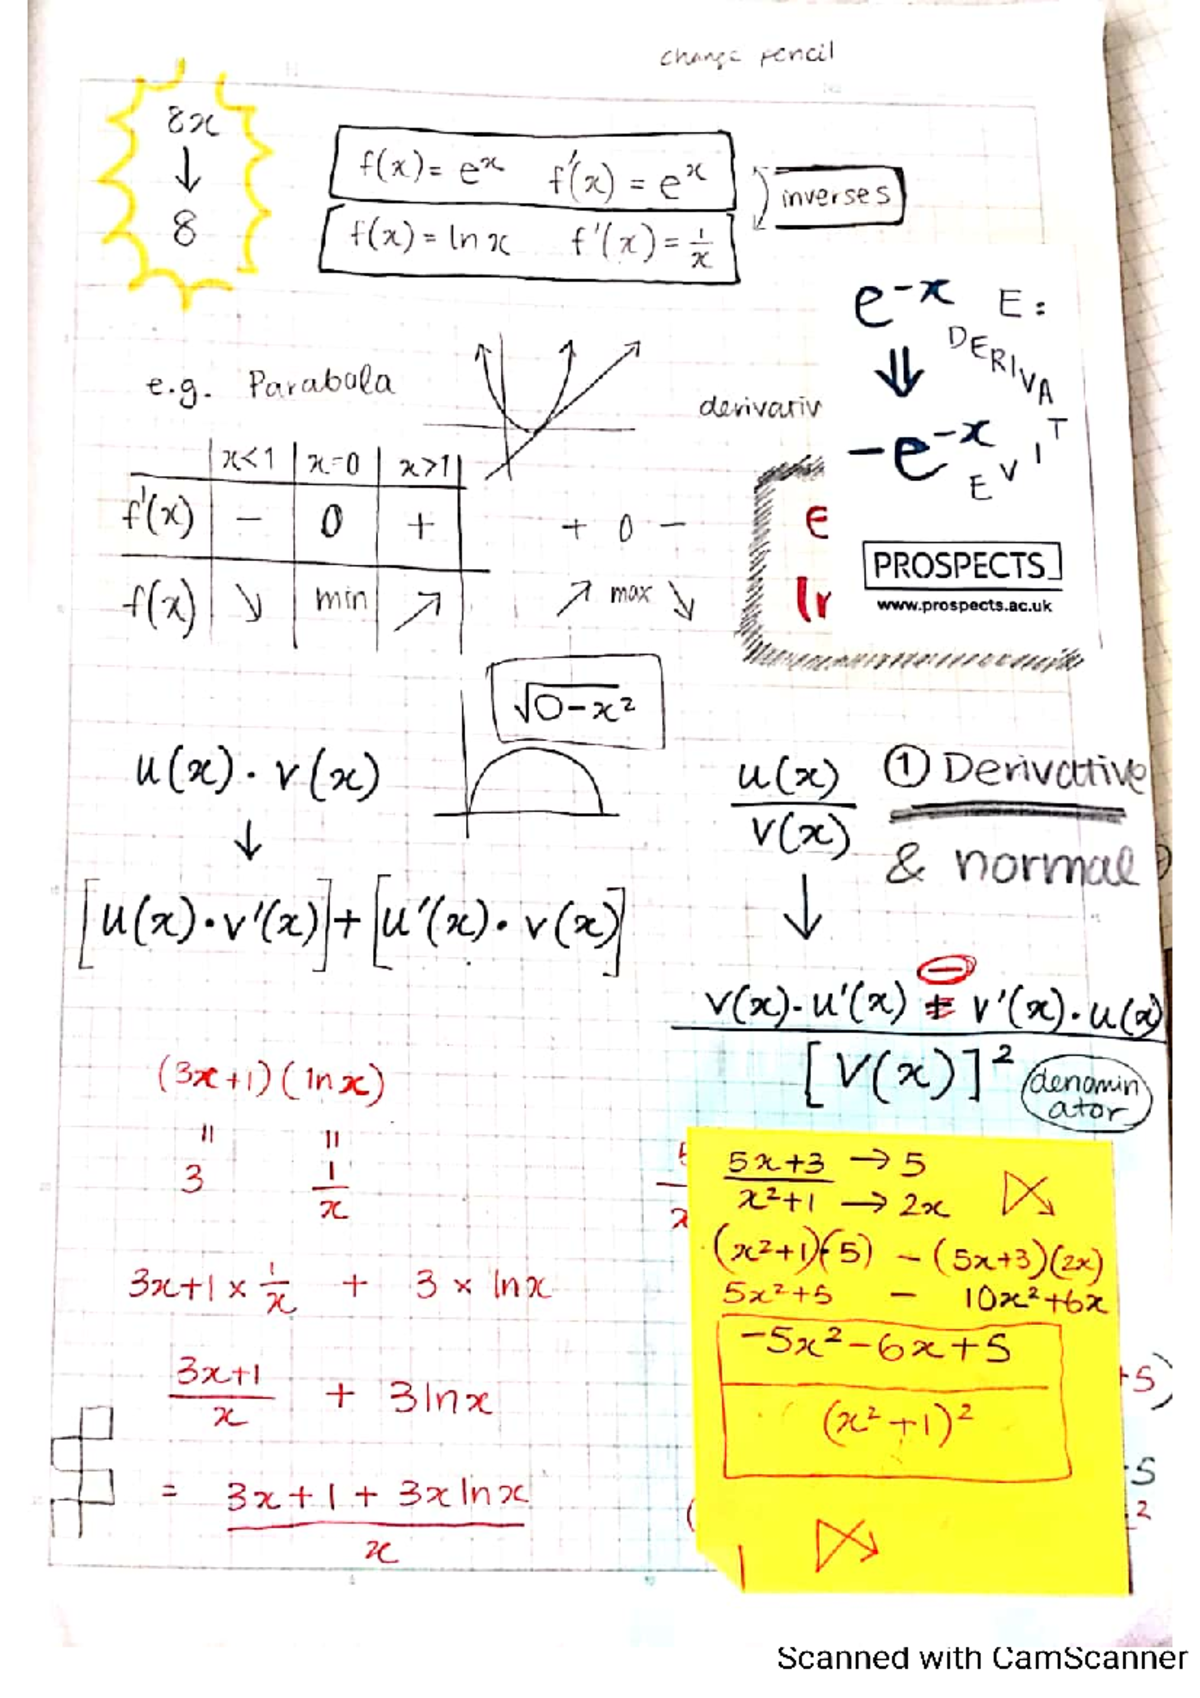 change pencil
8x
↓
8
f(x) = eˣ f'(x) = eˣ
f(x) = ln x f'(x) = 1/x
inverses
e⁻ˣ
⇓
-e⁻ˣ
E: DERIVATIVE
e.g. Parabola
derivativ
x<1 x=0 x>1
f'(x) - 0 +
f(x) ↘ min ↗
+ 0 -
↗ max ↘
e
PROSPECTS
www.prospects.ac.uk
√0-x²
u(x) · v(x)
↓
[u(x)·v'(x)] + [u'(x)·v(x)]
u(x)
v(x)
↓
① Derivative
& normal
v(x)·u'(x) - v'(x)·u(x)
[v(x)]²
denomin
ator
(3x+1)(lnx)
3 1/x
3x+1 × 1/x + 3 × lnx
3x+1/x + 3lnx
= 3x+1+3xlnx
x
5x+3 → 5
x²+1 → 2x
(x²+1)(5) - (5x+3)(2x)
5x²+5 - 10x²+6x
-5x²-6x+5
(x²+1)²
+5)
5
2
Scanned with CamScanner